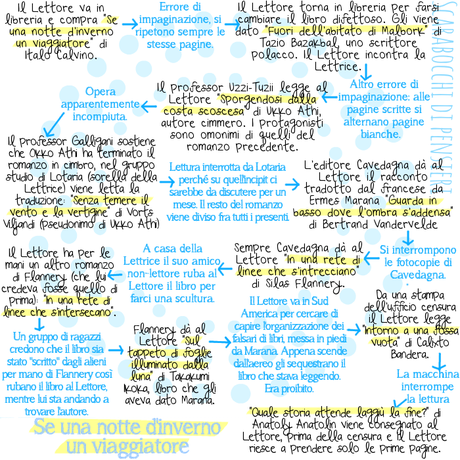 Il Lettore va in
libreria e compra "Se
una notte d'inverno
un viaggiatore" di
Italo Calvino.
Errore di
impaginazione, si
ripetono sempre le
stesse pagine.
Il Lettore torna in libreria per farsi
cambiare il libro difettoso. Gli viene
dato "Fuori dell'abitato di Malbork" di
Tazio Bazakbal, uno scrittore
polacco. Il Lettore incontra la
Lettrice.
SCARABOCCHI DI PENSIERI
Altro errore di
impaginazione: alle
pagine scritte si
alternano pagine
bianche.
Il professor Uzzi-Tuzii legge al
Lettore "Sporgendosi dalla
costa scoscesa" di Ukko Athi,
autore cimmero. I protagonisti
sono omonimi di quelli del
romanzo precedente.
Opera
apparentemente
incompiuta.
Il professor Galligani sostiene
che Okko Athi ha terminato il
romanzo in cimbro, nel gruppo
studio di Lotaria (sorella della
Lettrice) viene letta la
traduzione: "Senza temere il
vento e la vertigine" di Vorts
Viljandi (pseudonimo di Ukko Athi)
Lettura interrotta da Lotaria
perché su quell'incipit ci
sarebbe da discutere per un
mese. Il resto del romanzo
viene diviso fra tutti i presenti.
L'editore Cavedagna dà al
Lettore il racconto
tradotto dal francese da
Ermes Marana "Guarda in
basso dove l'ombra s'addensa"
di Bertrand Vandervelde
Si interrompono
le fotocopie di
Cavedagna.
Sempre Cavedagna dà al
Lettore "In una rete di
linee che s'intrecciano"
di Silas Flannery.
A casa della
Lettrice il suo amico
non-lettore ruba al
Lettore il libro per
farci una scultura.
Il Lettore ha per le
mani un altro romanzo
di Flannery (che lui
credeva fosse quello di
prima): "In una rete di
linee che s'intersecano".
Un gruppo di ragazzi
credono che il libro sia
stato "scritto" dagli alieni
per mano di Flannery così
rubano il libro al Lettore,
mentre lui sta andando a
trovare l'autore.
Flannery dà al
Lettore "Sul
tappeto di foglie
illuminato dalla
luna" di Takakumi
Ikoka, libro che gli
aveva dato Marana.
Il Lettore va in Sud
America per cercare di
capire l'organizzazione dei
falsari di libri, messa in piedi
da Marana. Appena scende
dall'aereo gli sequestrano il
libro che stava leggendo.
Era proibito.
Da una stampa
dell'ufficio censura
il Lettore legge
"Intorno a una fossa
vuota" di Calixto
Bandera.
La macchina
interrompe
la lettura
"Quale storia attende laggiù la fine?" di
Anatoly Anatolin viene consegnato al
Lettore, prima della censura e il Lettore
riesce a prendere solo le prime pagine.
Se una notte d'inverno
un viaggiatore